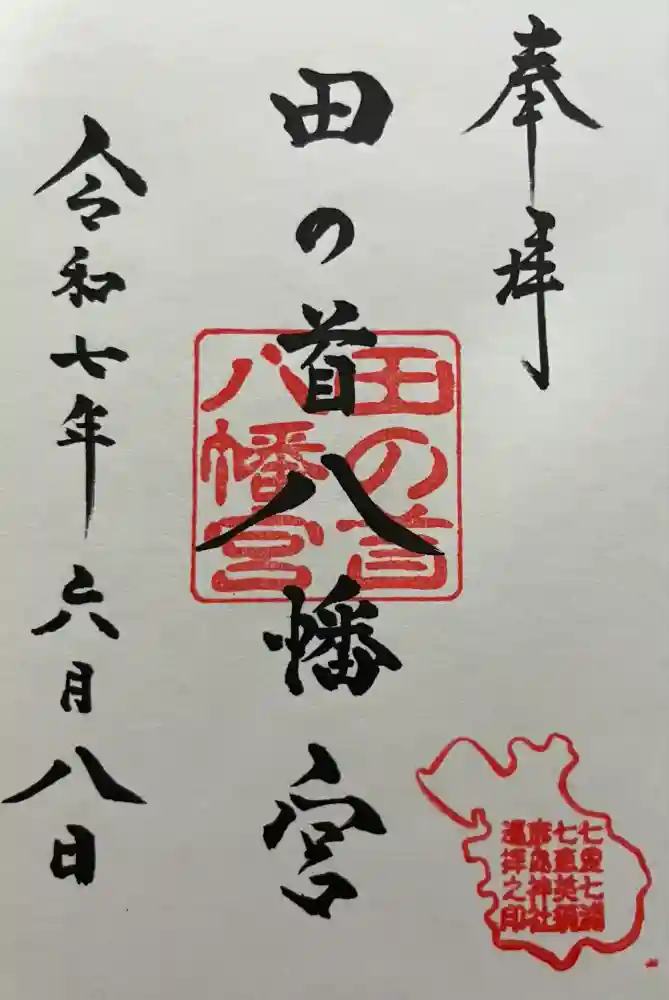 奉拝
田の首八幡宮
田の首
八幡宮
令和七年六月八日
七里七浦
七恵美須
遥拝之印